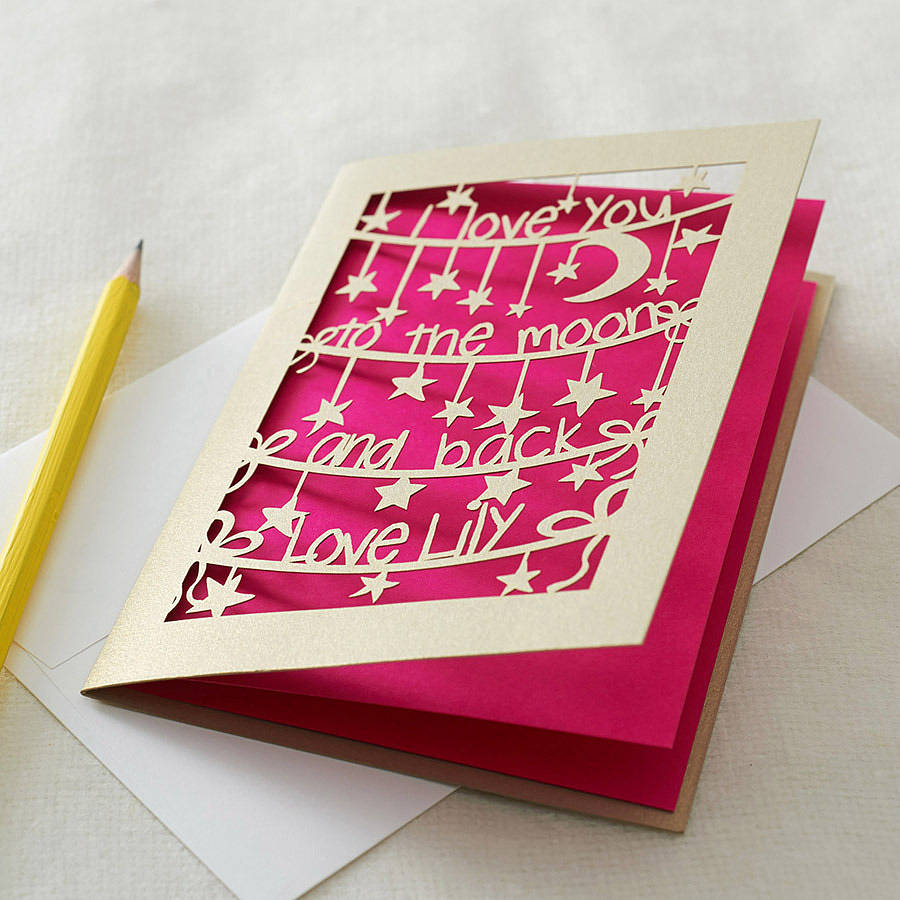 I love you
to the moon
and back
Love Lily